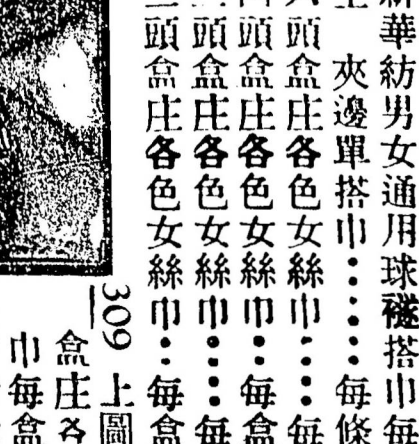 華紡男女通用球襚搭巾每
夾邊單搭巾……每條
頭盒庄各色女絲巾…每
頭盒庄各色女絲巾…每盒
頭盒庄各色女絲巾…每
頭盒庄各色女絲巾…每盒
309 上圖
盒庄各
巾每盒